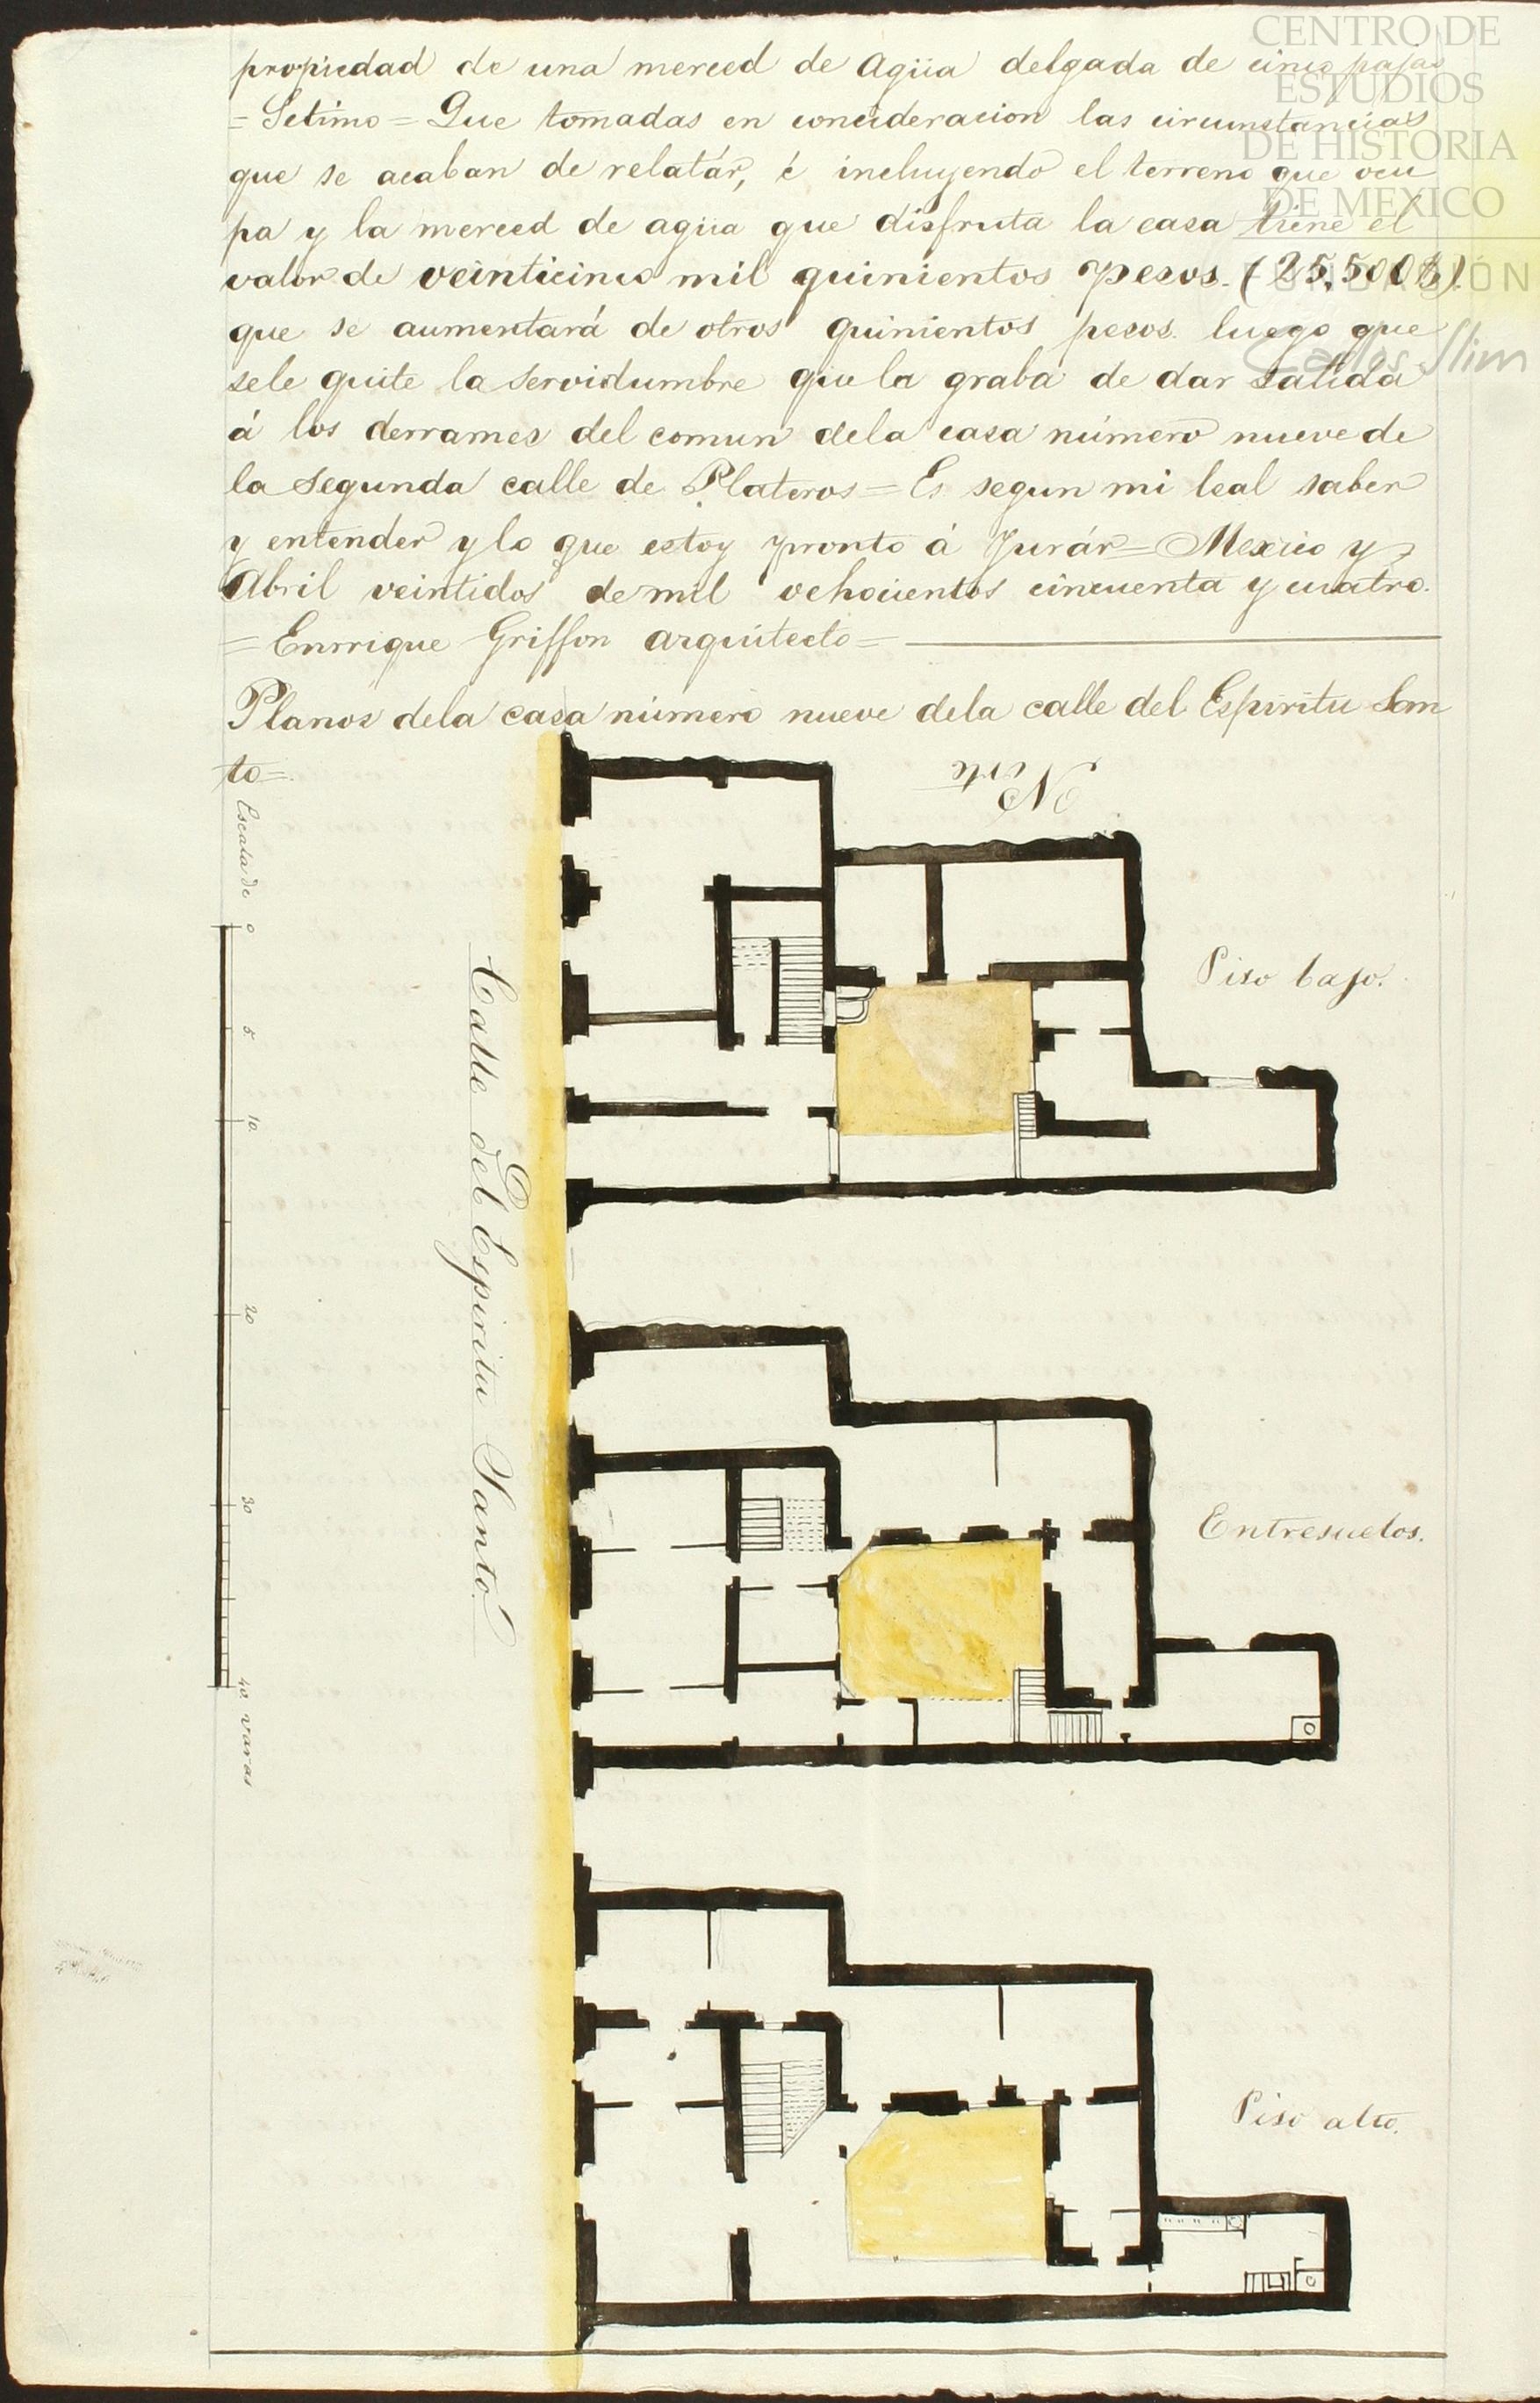 propiedad de una merced de agüa delgada de cinco pajas
= Setimo = Que tomadas en concideracion las circunstancias
que se acaban de relatár, é incluyendo el terreno que ocu
pa y la merced de agüa que disfruta la casa tiene el
valor de veinticinco mil quinientos pesos. (25,500 $).
que se aumentará de otros quinientos pesos luego que
sele quite la servidumbre que la graba de dar salida
á los derrames del comun dela casa número nueve de
la Segunda calle de Plateros = Es segun mi leal saber
y entender y lo que estoy pronto á Jurár = Mexico y
Abril veintidos de mil ochocientos cincuenta y cuatro.
= Enrrique Griffon arquitecto =
Planos dela casa número nueve dela calle del Espiritu San
to =
Norte
Escala de
0
5
10
20
30
40 varas
Calle del Espiritu Santo.
Piso bajo.
Entresuelos.
Piso alto.
CENTRO DE
ESTUDIOS
DE HISTORIA
DE MEXICO
FUNDACIÓN
Carlos Slim